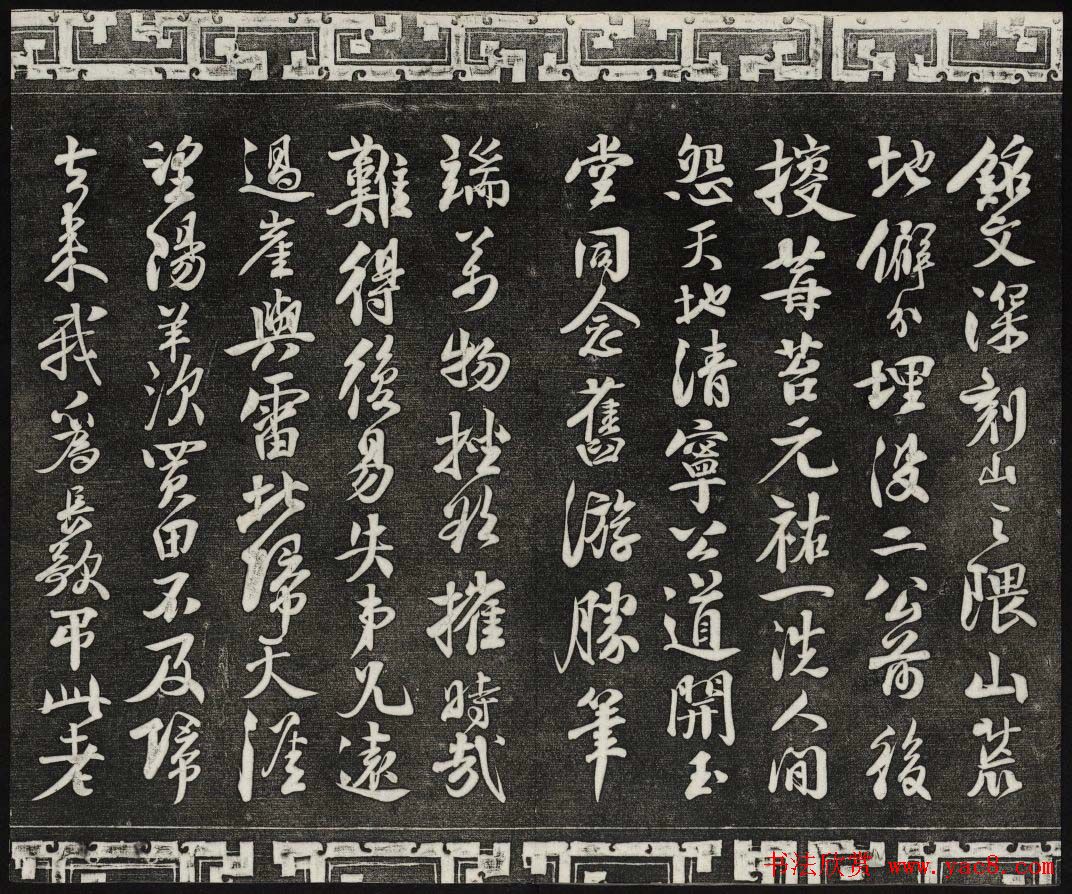 銘文深刻山之隈山荒
地僻分埋没二公前後
莓苔元祐一洗人間
怨天地清寧公道開玉
堂同念舊游勝筆
端萬物挫欲摧時哉
難得後易失弟兄遠
過崖與雷北歸大
望陽羨買田不及歸
去來我為長歌弔此老
书法欣赏 www.yac8.com